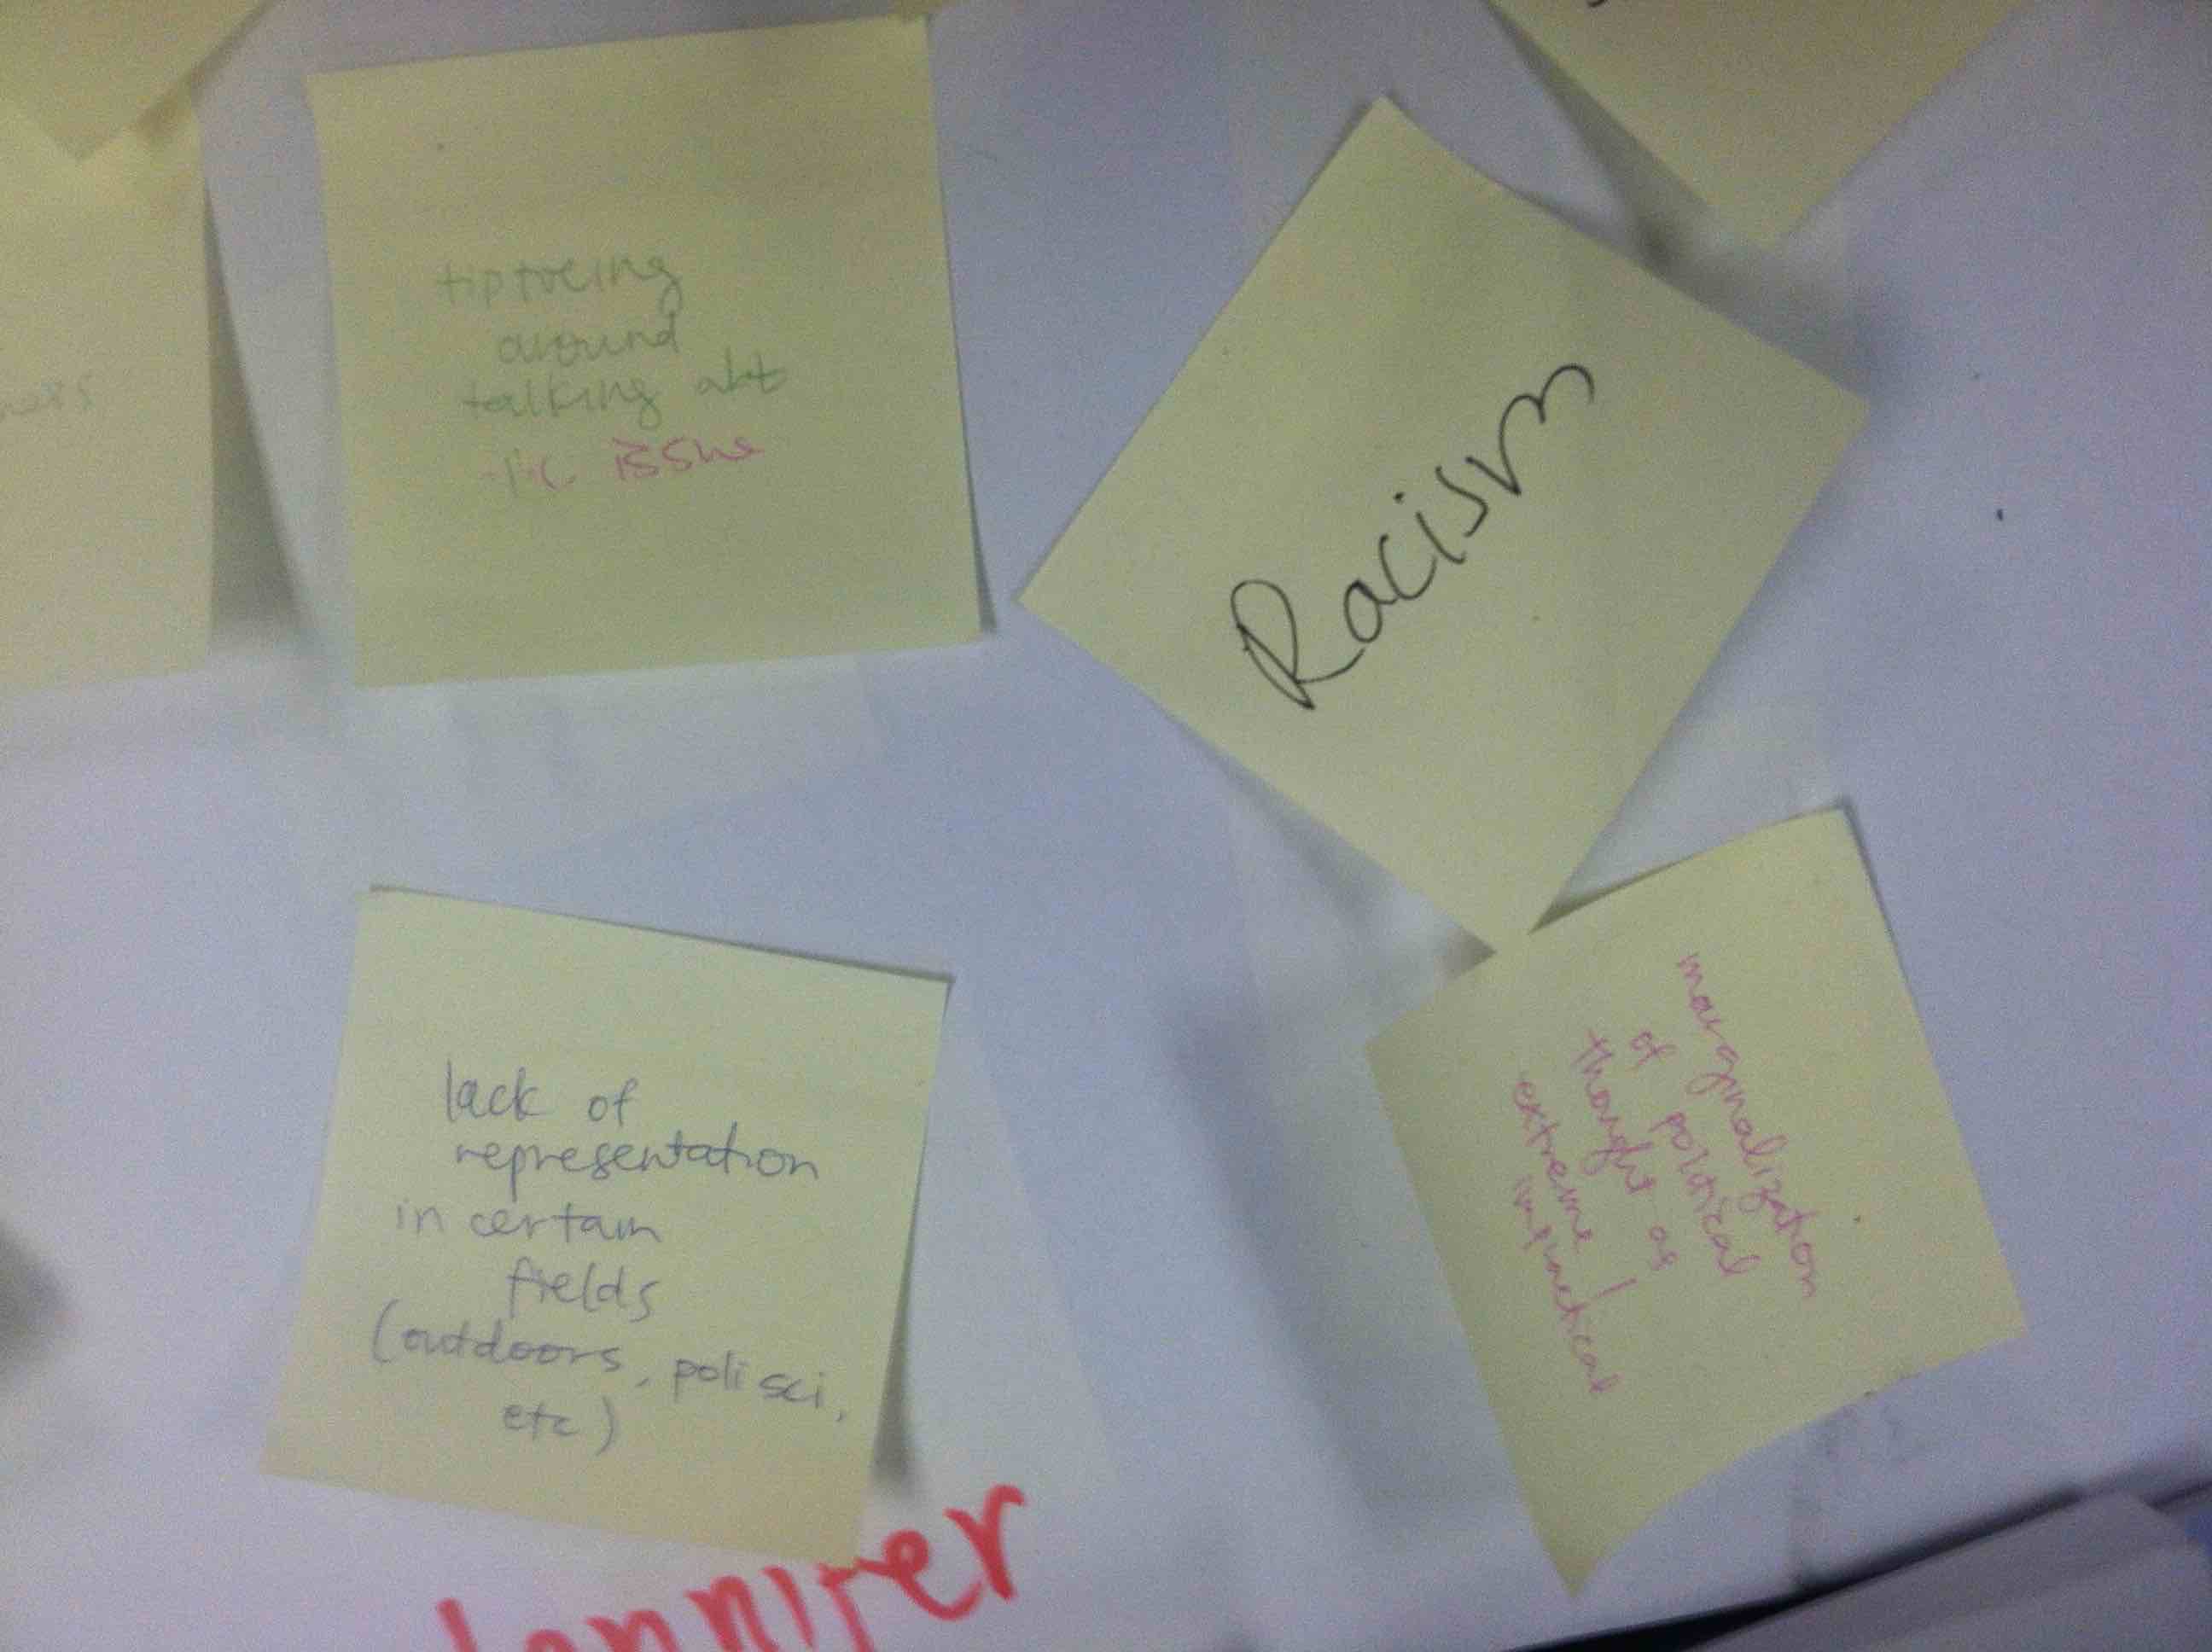 tiptoeing
around
talking abt
issue
Racism
lack of
representation
in certain
fields
(outdoors, poli sci,
etc)
marginalization
of political
thought as
extreme /
impractical
Jennifer